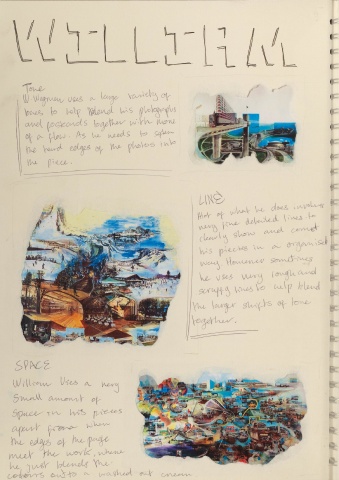 WILLIAM
Tone
W Wegman uses a large variety of
tones to help blend his photographs
and postcards together with more
of a flow. As he needs to soften
the hard edges of the photos into
the piece.
LINE
Most of what he does involves
very fine detailed lines to
clearly show and connect
his pieces in a organised
way. However sometimes
he uses very rough and
scruffy lines to help blend
the larger shifts of tone
together.
SPACE
William Uses a very
Small amount of
Space in his pieces
apart from when
the edges of the page
meet the work, where
he just blends the
colours into a washed out cream